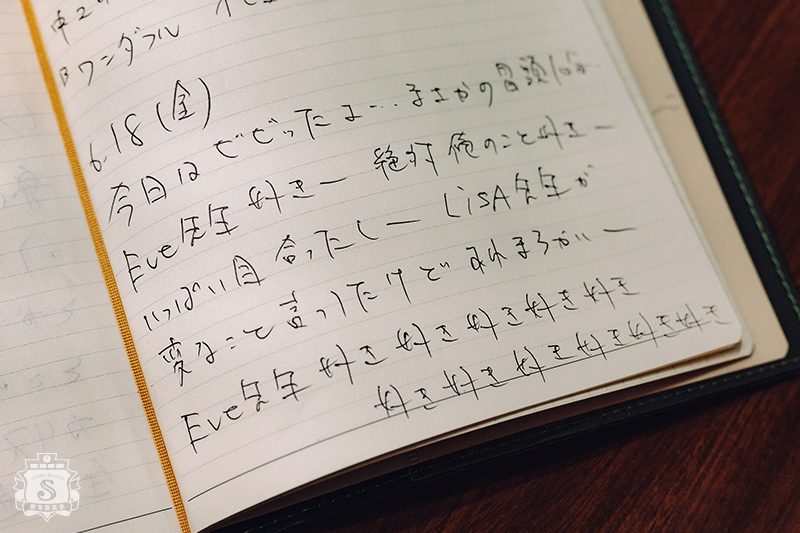 Bワンダフル
6.18(金)
今日はビビったよー…まさかの冒頭
Eve先生 好きー 絶対 俺のこと好きー
いっぱい目合ったしー LiSA先生が
変なこと言ってたけど あれまちがいー
Eve先生 好き 好き 好き 好き 好き
好き 好き 好き 好き 好き 好き
S